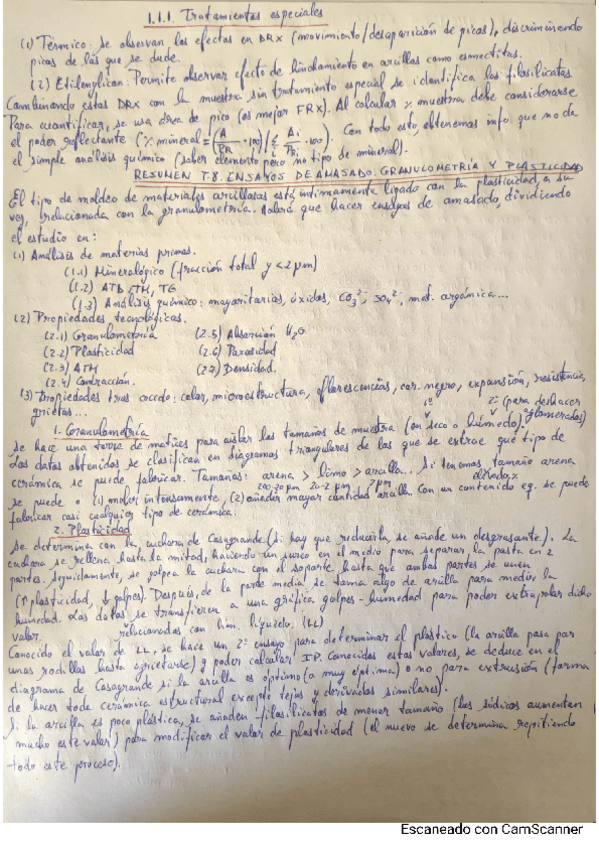 1.1.1. Tratamientos especiales
(1) Térmico: se observan los efectos en DRX (movimiento/desaparición de picos), discriminando
picos de los que se dude.
(2) Etilenglicol: Permite observar efecto de hinchamiento en arcillas como esmectitas.
Combinando estos DRX con la muestra sin tratamiento especial se identifica los filosilicatos.
Para cuantificar, se usa área de pico (es mejor FRX). Al calcular % muestra debe considerarse
el poder reflectante (% mineral = (A/PR · 100) / Σ Ai/PRi · 100). Con todo esto, obtenemos info. que no da
el simple análisis químico (saber elemento pero no tipo de mineral).
RESUMEN T.8. ENSAYOS DE AMASADO. GRANULOMETRÍA Y PLASTICIDAD
El tipo de moldeo de materiales arcillosos está íntimamente ligado con la plasticidad, a su
vez, relacionada con la granulometría. Habrá que hacer ensayos de amasado, dividiendo
el estudio en:
(1) Análisis de materias primas.
(1.1) Mineralógico (fracción total y <2 µm)
(1.2) ATD, ATH, TG
(1.3) Análisis químico: mayoritarios, óxidos, CO₃²⁻, SO₄²⁻, mat. orgánica...
(2) Propiedades tecnológicas.
(2.1) Granulometría (2.5) Absorción H₂O
(2.2) Plasticidad (2.6) Porosidad
(2.3) ATH (2.7) Densidad.
(2.4) Contracción.
(3) Propiedades tras cocido: color, microestructura, eflorescencias, cor. negro, expansión, resistencia,
grietas...
1. Granulometría 1º 2º (para deshacer
Se hace una torre de tamices para aislar los tamaños de muestra (en seco o húmedo). aglomerados)
Los datos obtenidos se clasifican en diagramas triangulares de los que se extrae qué tipo de
cerámica se puede fabricar. Tamaños: arena > limo > arcilla. Si tenemos tamaño arena
200-20 µm 20-2 µm 2 µm elevado,
se puede (1) moler intensamente, (2) añadir mayor cantidad arcilla. Con un contenido eq. se puede
fabricar casi cualquier tipo de cerámica.
2. Plasticidad
Se determina con la cuchara de Casagrande (si hay que reducirla, se añade un desgrasante). La
cuchara se rellena hasta la mitad, haciendo un surco en el medio para separar la pasta en 2
partes. Seguidamente, se golpea la cuchara con el soporte hasta que ambas partes se unen
(↑ plasticidad, ↓ golpes). Después, de la parte media se toma algo de arcilla para medir la
humedad. Los datos se transfieren a una gráfica golpes-humedad para poder extrapolar dicho
valor. relacionados con lím. líquido. (LL)
Conocido el valor de LL, se hace un 2º ensayo para determinar el plástico (la arcilla pasa por
unos rodillos hasta agrietarse) y poder calcular IP. Conocidos estos valores, se deduce en el
diagrama de Casagrande si la arcilla es óptima (o muy óptima) o no para extrusión (forma
de hacer toda cerámica estructural excepto tejas y derivados similares).
Si la arcilla es poco plástica, se añaden filosilicatos de menor tamaño (los sódicos aumentan
mucho este valor) para modificar el valor de plasticidad (el nuevo se determina repitiendo
todo este proceso).
Escaneado con CamScanner